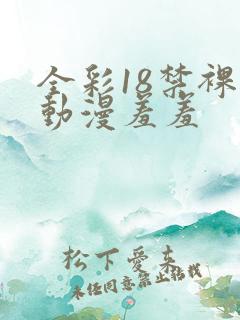 全彩18禁裸
動漫羞羞
松下愛來
未经同意禁止转载